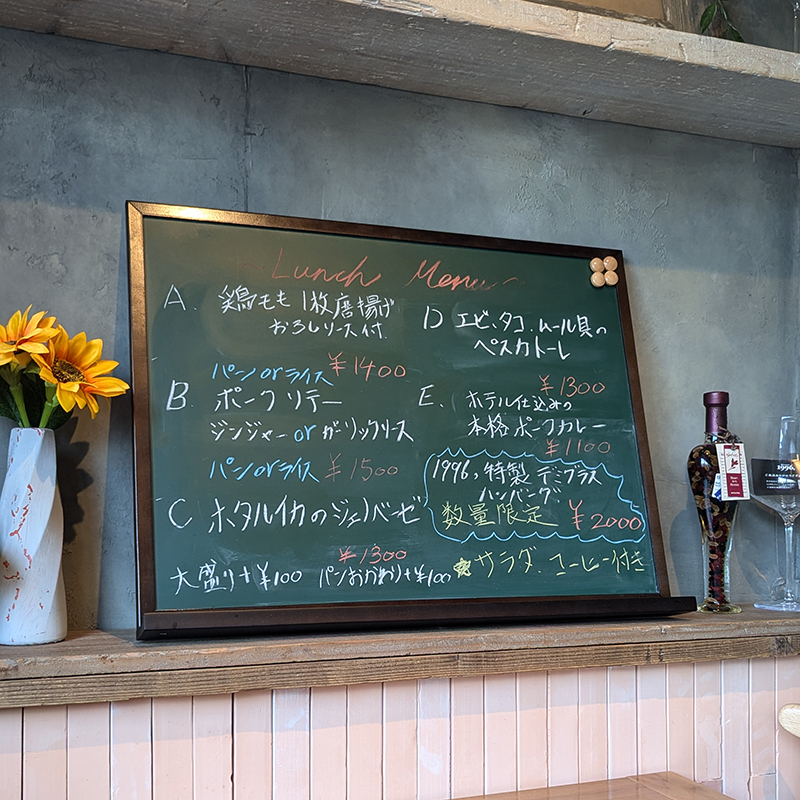 Lunch Menu
A. 鶏もも1枚唐揚げ
おろしソース付
パンorライス ¥1400
B. ポークソテー
ジンジャーorガーリックソース
パンorライス ¥1500
C ホタルイカのジェノベーゼ
¥1300
大盛り+¥100 パンおかわり+¥100
D エビ、タコ、ムール貝の
ペスカトーレ
¥1300
E. ホテル仕込みの
本格ポークカレー
¥1100
1996。特製デミグラス
ハンバーグ
数量限定 ¥2000
サラダ、コーヒー付き
1996